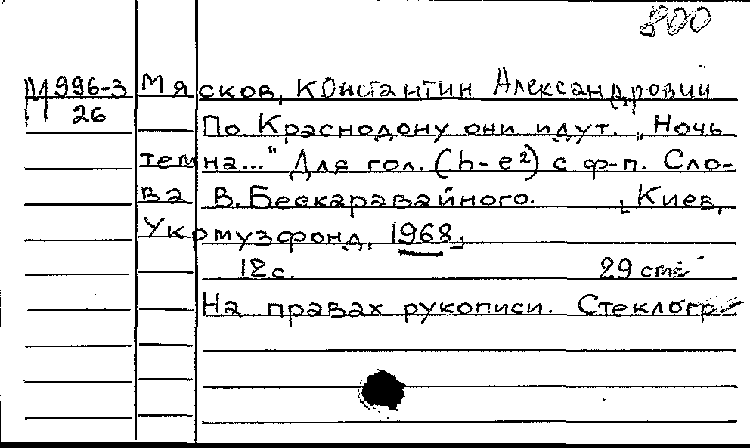 800
М 996-3 Мясков, Константин Александрович
26
По Краснодону они идут. „Ночь
темна..." Для гол. (h-e²) с ф-п. Сло-
ва В. Бескаравайного. [Киев,
Укрмузфонд, 1968]
12 с. 29 см
На правах рукописи. Стеклогр